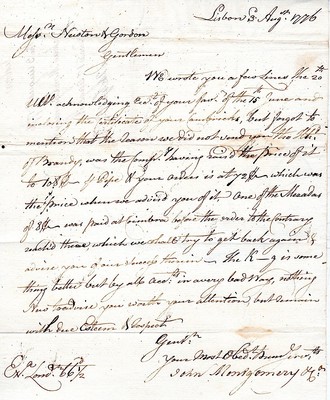 Lisbon 3 Augt. 1776
Messrs. Newton & Gordon
Gentlemen
We wrote you a few Lines the 20th
Ulto. acknowledging rect. of your favr. of the 15th June and
inclosing the certificate of your cambricks, but forgot to
mention that the reason we did not send you the
of Brandy, was the Comp.y having raised the price of it
to 108 Pipe & your orders is at 72 which was
the price when we advised you of it – One of the Meadas
of was paid at Coimbra before the order to the contrary
reach'd there, which we shall try to get back again &
advise you of our success therein – The K–g is some
thing better but by all accots. in a very bad way, nothing
New to advise you worth your attention, but remain
with due Esteem & Respect
Gentn.
Your most Obedt. humb. Servts.
John Montgomery & Co.
Exa. Londn. 66 1/2